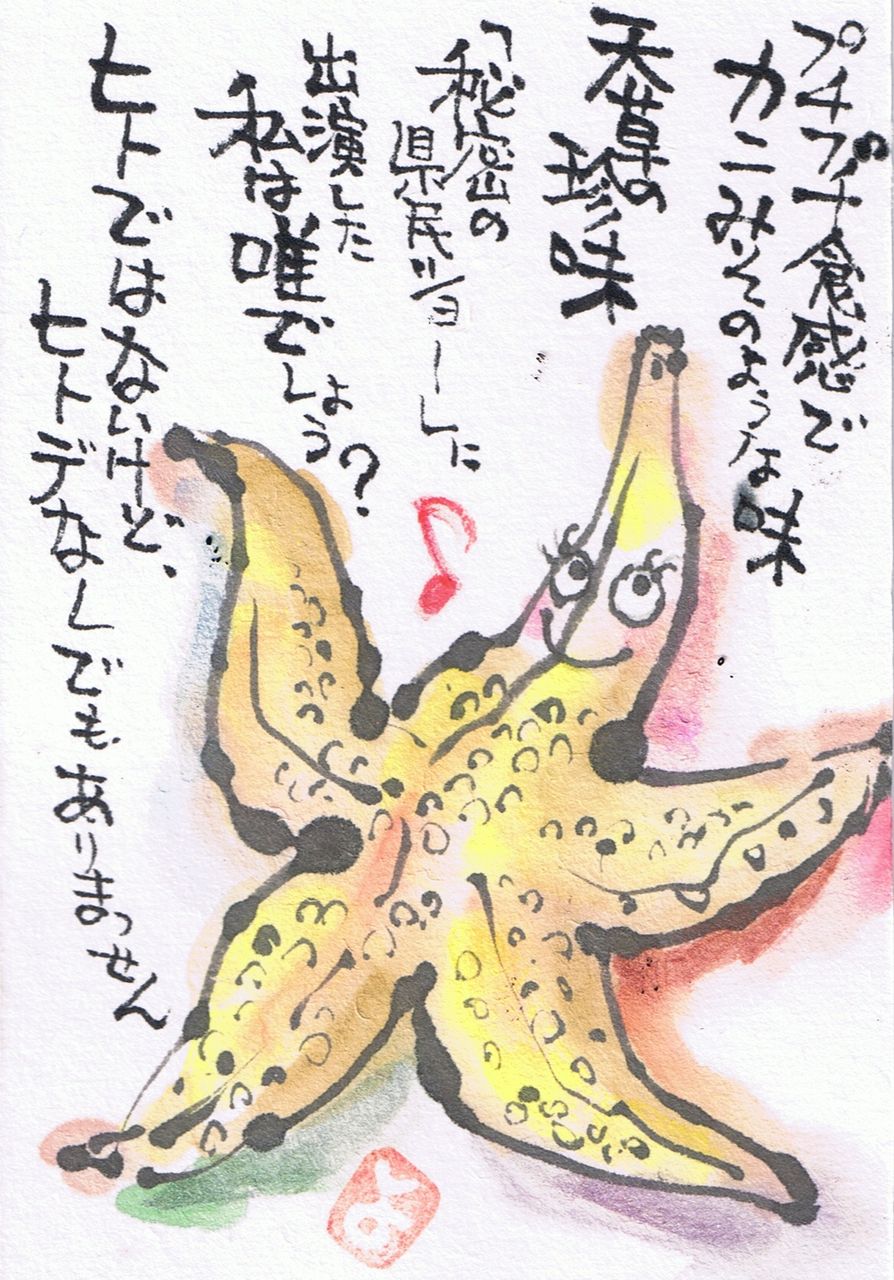 プチプチ食感で
カニみそのような味
天草の
珍味
「秘密の
県民ショー」に
出演した
私は唯でしょう?
ヒトではないけど、
ヒトデなしでもありまっせん